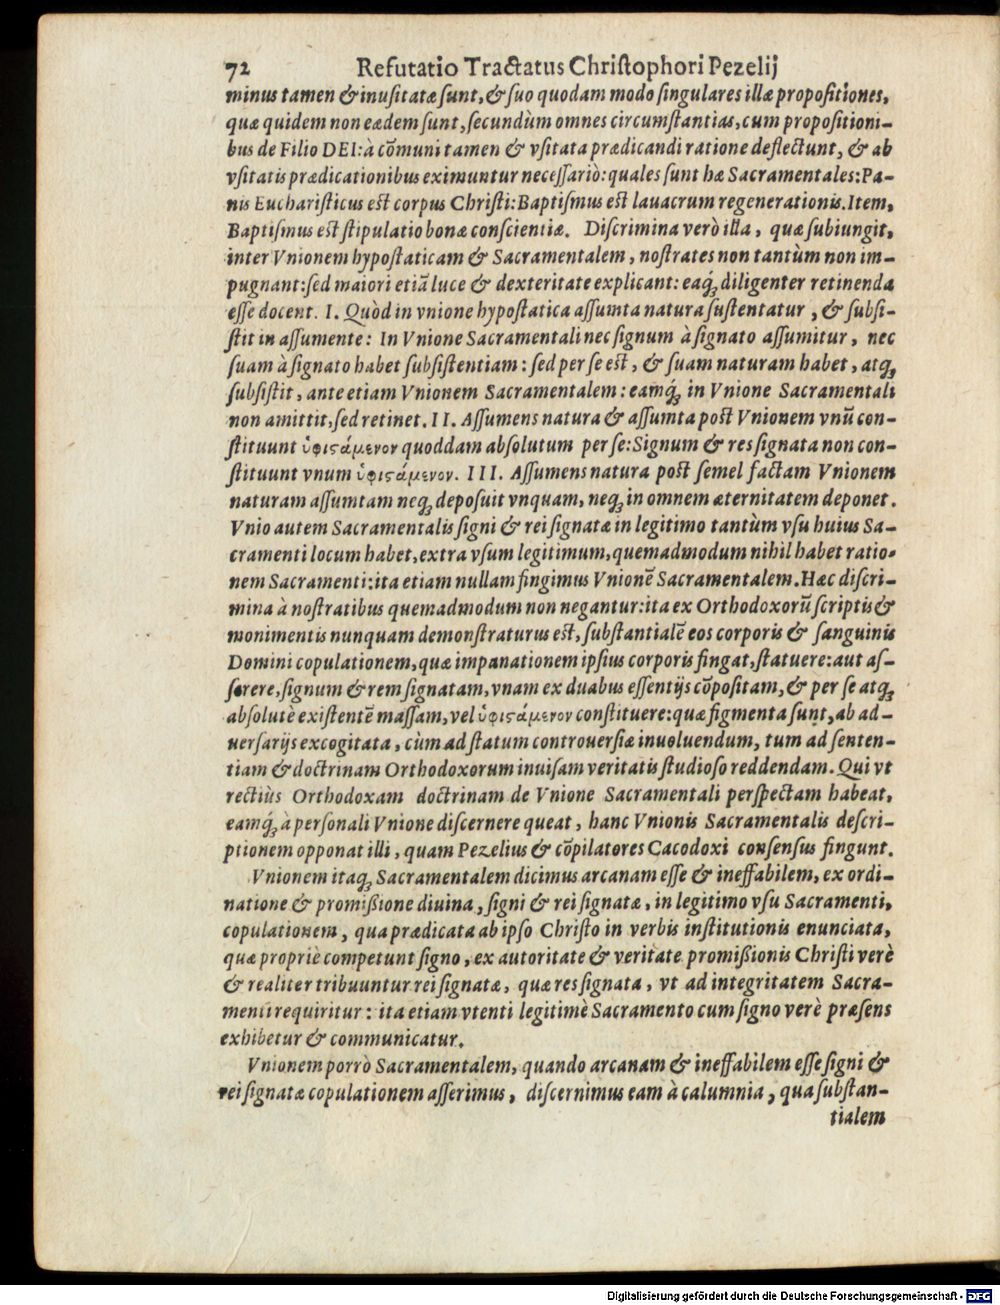 72 Refutatio Tractatus Chriſtophori Pezelij
minus tamen & inuſitatæ ſunt, & ſuo quodam modo ſingulares illæ propoſitiones,
quæ quidem non eædem ſunt, ſecundùm omnes circumſtantias, cum propoſitioni-
bus de Filio DEI: à cõmuni tamen & vſitata prædicandi ratione deflectunt, & ab
vſitatis prædicationibus eximuntur neceſſariò: quales ſunt hæ Sacramentales: Pa-
nis Euchariſticus eſt corpus Chriſti: Baptiſmus eſt lauacrum regenerationis. Item,
Baptiſmus eſt ſtipulatio bonæ conſcientiæ. Diſcrimina verò illa, quæ ſubiungit,
inter Vnionem hypoſtaticam & Sacramentalem, noſtrates non tantùm non im-
pugnant: ſed maiori etiã luce & dexteritate explicant: eaq́ꝫ diligenter retinenda
eſſe docent. I. Quòd in vnione hypoſtatica aſſumta natura ſuſtentatur, & ſubſi-
ſtit in aſſumente: In Vnione Sacramentali nec ſignum à ſignato aſſumitur, nec
ſuam à ſignato habet ſubſiſtentiam: ſed per ſe eſt, & ſuam naturam habet, atqꝫ
ſubſiſtit, ante etiam Vnionem Sacramentalem: eamq́ꝫ in Vnione Sacramentali
non amittit, ſed retinet. II. Aſſumens natura & aſſumta poſt Vnionem vnũ con-
ſtituunt ὑφιςάμενον quoddam abſolutum per ſe: Signum & res ſignata non con-
ſtituunt vnum ὑφιςάμενον. III. Aſſumens natura poſt ſemel factam Vnionem
naturam aſſumtam neqꝫ depoſuit vnquam, neqꝫ in omnem æternitatem deponet.
Vnio autem Sacramentalis ſigni & rei ſignatæ in legitimo tantùm vſu huius Sa-
cramenti locum habet, extra vſum legitimum, quemadmodum nihil habet ratio-
nem Sacramenti: ita etiam nullam fingimus Vnionẽ Sacramentalem. Hæc diſcri-
mina à noſtratibus quemadmodum non negantur: ita ex Orthodoxorũ ſcriptis &
monimentis nunquam demonſtraturus eſt, ſubſtantialẽ eos corporis & ſanguinis
Domini copulationem, quæ impanationem ipſius corporis fingat, ſtatuere: aut aſ-
ſerere, ſignum & rem ſignatam, vnam ex duabus eſſentijs cõpoſitam, & per ſe atqꝫ
abſolutè exiſtentẽ maſſam, vel ὑφιςάμενον conſtituere: quæ figmenta ſunt, ab ad-
uerſarijs excogitata, cùm ad ſtatum controuerſiæ inuoluendum, tum ad ſenten-
tiam & doctrinam Orthodoxorum inuiſam veritatis ſtudioſo reddendam. Qui vt
rectiùs Orthodoxam doctrinam de Vnione Sacramentali perſpectam habeat,
eamq́ꝫ à perſonali Vnione diſcernere queat, hanc Vnionis Sacramentalis deſcri-
ptionem opponat illi, quam Pezelius & cõpilatores Cacodoxi conſenſus fingunt.
Vnionem itaqꝫ Sacramentalem dicimus arcanam eſſe & ineffabilem, ex ordi-
natione & promißione diuina, ſigni & rei ſignatæ, in legitimo vſu Sacramenti,
copulationem, qua prædicata ab ipſo Chriſto in verbis inſtitutionis enunciata,
quæ propriè competunt ſigno, ex autoritate & veritate promißionis Chriſti verè
& realiter tribuuntur rei ſignatæ, quæ res ſignata, vt ad integritatem Sacra-
menti requiritur: ita etiam vtenti legitimè Sacramento cum ſigno verè præſens
exhibetur & communicatur.
Vnionem porrò Sacramentalem, quando arcanam & ineffabilem eſſe ſigni &
rei ſignatæ copulationem aſſerimus, diſcernimus eam à calumnia, qua ſubſtan-
tialem
Digitalisierung gefördert durch die Deutsche Forschungsgemeinschaft - DFG